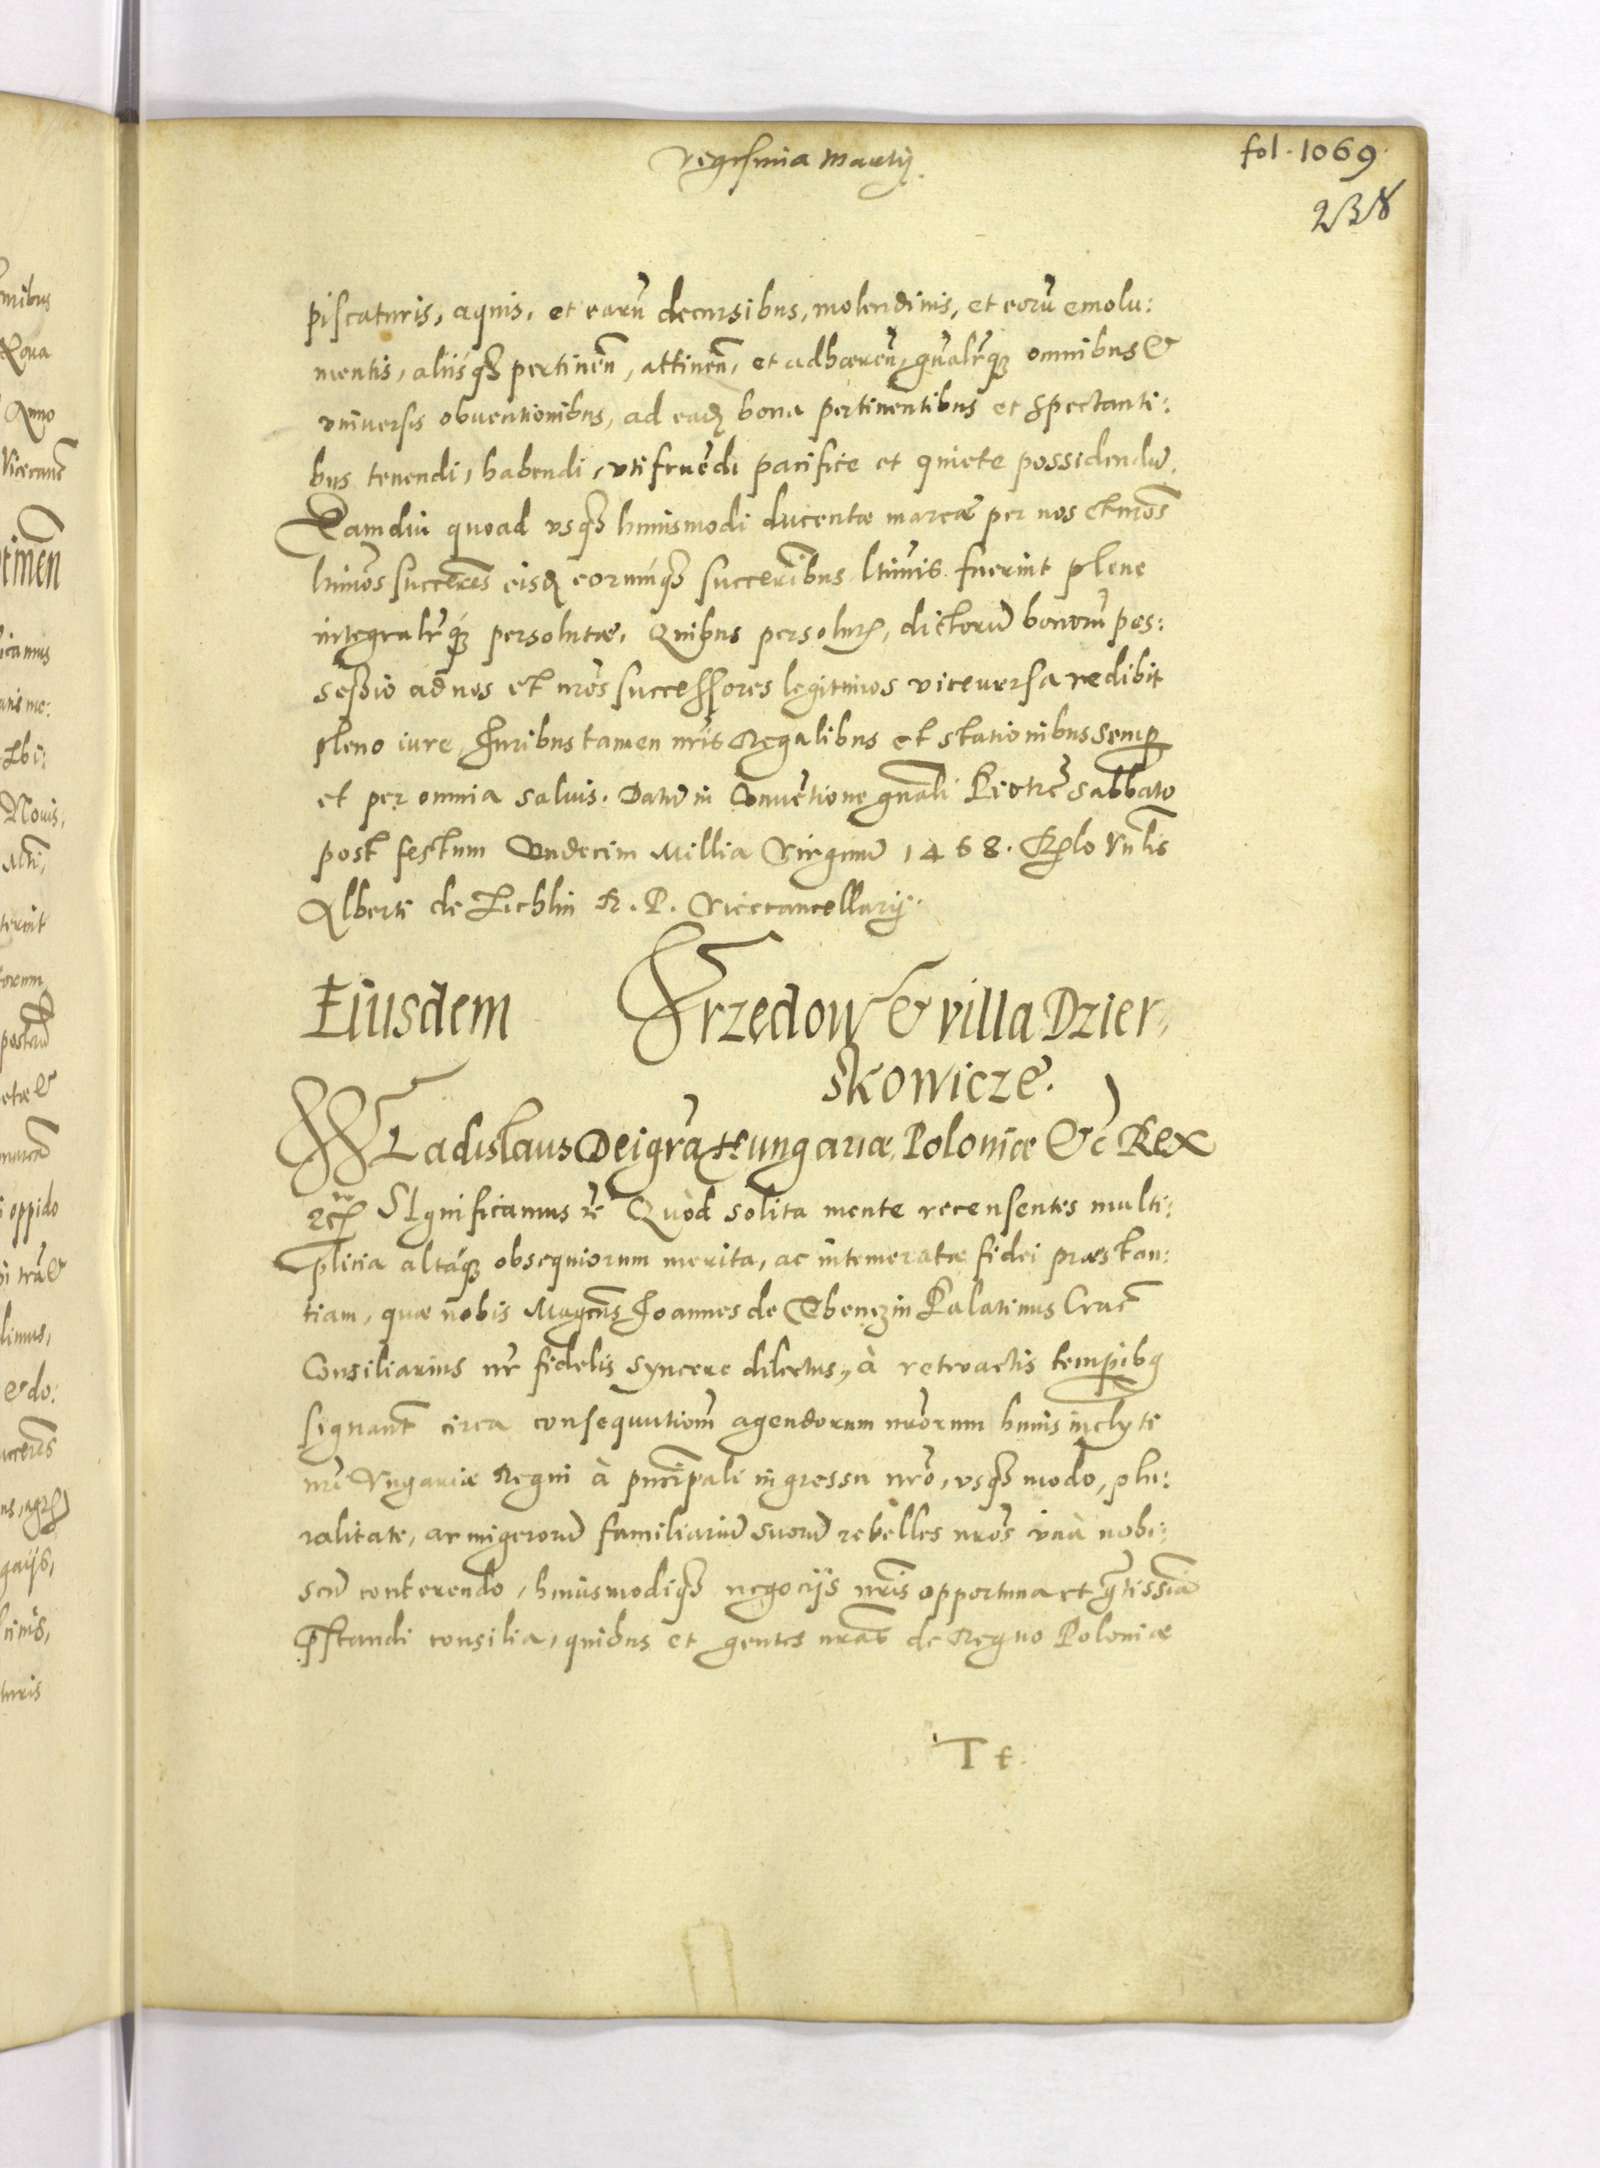 Vegesima Martij
fol. 1069
238
piscaturis, aquis, et earū decursibus, molendinis, et eorū emolu:
mentis, alijsqꝫ pertineñ, attineñ, et adhaereñ, gñalr̃qꝫ omnibus &
vniversis obventionibus, ad eadꝫ bona pertinentibus et spectanti:
bus tenendi, habendi, vtifruēdi pacifice et quiete possidendū.
Tamdiu quoad vsqꝫ huiusmodi ducentae marcae per nos et nr̃os
ltimos succeres eisdꝫ eorumqꝫ succeribus ltimis fuerint plene
integralr̃qꝫ persolutae. Quibus persolutꝭ, dictorū bonorū pos:
sessio ad nos et nr̃os successores legittimos viceversa redibit
pleno iure, Iuribus tamen nr̃is Regalibus et stationibus semꝑ
et per omnia salvis. Datū in Conuētione gnãli Piotrc̃ sabbato
post festum Undecim Millia Virginū 1468. Rlo Vnlis
Alberti de Zichlin R. P. Vicecancellarij.
Eiusdem Vrzedow & villa Dzier
skowicze.
WLadislaus Dei gr̃a Hungariae, Poloniae &c̃ Rex
SIgnificamus Quòd solita mente recensentes multi:
plicia altáqꝫ obsequiorum merita, ac intemeratae fidei praestan:
tiam, quae nobis Magcus Joannes de Thenczin Palatinus Crac̃
Consiliarius nr̃ fidelis syncere dilectus, à retroactis temꝑibꝫ
signant̃ circa consequutionẽ agendorum nr̃orum huius inclyti
nr̃i Vngariae Regni à pncipali ingressu nr̃o, vsqꝫ modo, plu:
ralitate, armigerorū familiariū suorū rebelles nr̃os vnà nobi:
scū conterendo, huiusmodiqꝫ negocijs nr̃is opportuna et gtissima
p̃standi consilia, quibus et gentes nr̃as de Regno Poloniae
Tt.